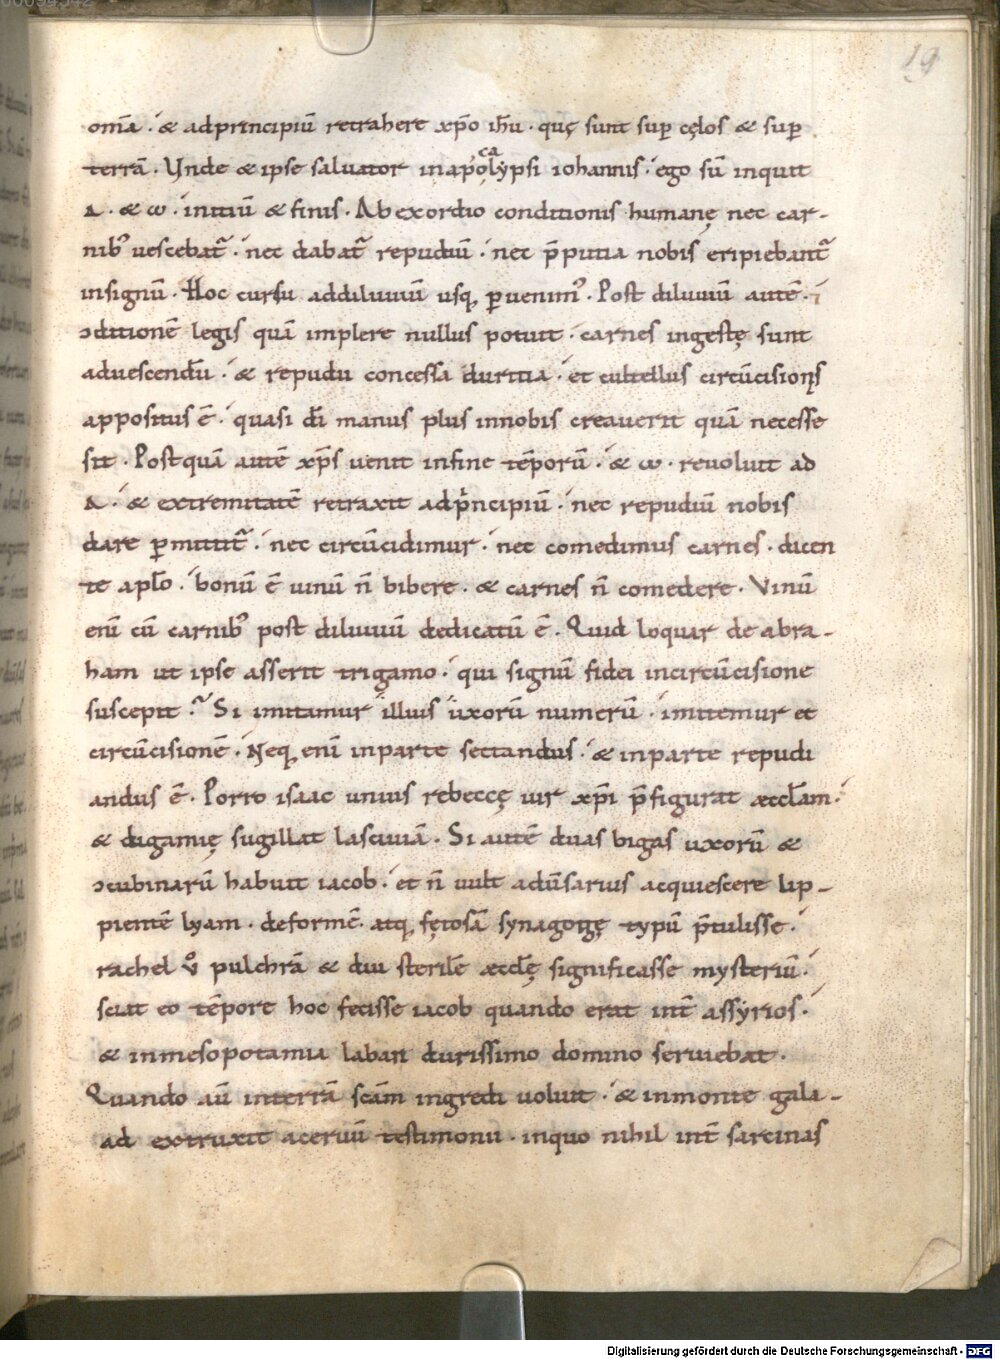 19
om̄a · & adprincipiū retrahere xp̄o ih̄u · quę sunt sup̄ cęlos & sup̄
terrā · Unde & ipse saluator inapocalypsi iohannis · ego sū inquit
A · & ω · initiū & finis · Ab exordio conditionis humanę nec car-
nibꝰ uescebat᷑ · nec dabat᷑ repudiū · nec p̄putia nobis eripiebant᷑
insignū · Hoc cursu addiluuium usq; ꝑuenimꝰ · Post diluuiū autē · i
ↄditionē legis quā implere nullus potuit · carnes ingestę sunt
aduescendū · & repudii concessa duritia · et cultellus circūcisionis
appositus ē · quasi dī manus plus innobis creauerit quā necesse
sit · Postquā autē xp̄s uenit infine tēporū · & ω · reuoluit ad
A · & extremitatē retraxit adpͥncipiū · nec repudiū nobis
dare ꝑmittit᷑ · nec circūcidimur · nec comedimus carnes · dicen
te apl̄o · bonū ē uinū n̄ bibere · & carnes n̄ comedere · Vinū
enī cū carnibꝰ post diluuiū dedicatū ē · Quid loquar de abra-
ham ut ipse asserit trigamo · qui signū fidei incircūcisione
suscepit · Si imitamur illius uxorū numerū · imitemur et
circūcisionē · Neq; enī inparte sectandus · & inparte repudi
andus ē · Porro isaac unius rebeccę uir xp̄i p̄figurat æccl̄am ·
& digamię sugillat lasciuiā · Si autē duas bigas uxorū &
ↄcubinarū habuit iacob · et n̄ uult aduersarius acquiescere lip-
pientē lyam · deformē · atq; fętosā synagogę typū p̄tulisse ·
rachel ů pulchrā & diu sterilē æccl̄ę significasse mysteriū ·
sciat eo tēpore hoc fecisse iacob quando erat int̄ assyrios ·
& inmesopotamia laban durissimo domino seruiebat ·
Quando aū interrā sc̄am ingredi uoluit · & inmonte gala-
ad extruxit aceruū testimonii · inquo nihil int̄ sarcinas
Digitalisierung gefördert durch die Deutsche Forschungsgemeinschaft - DFG